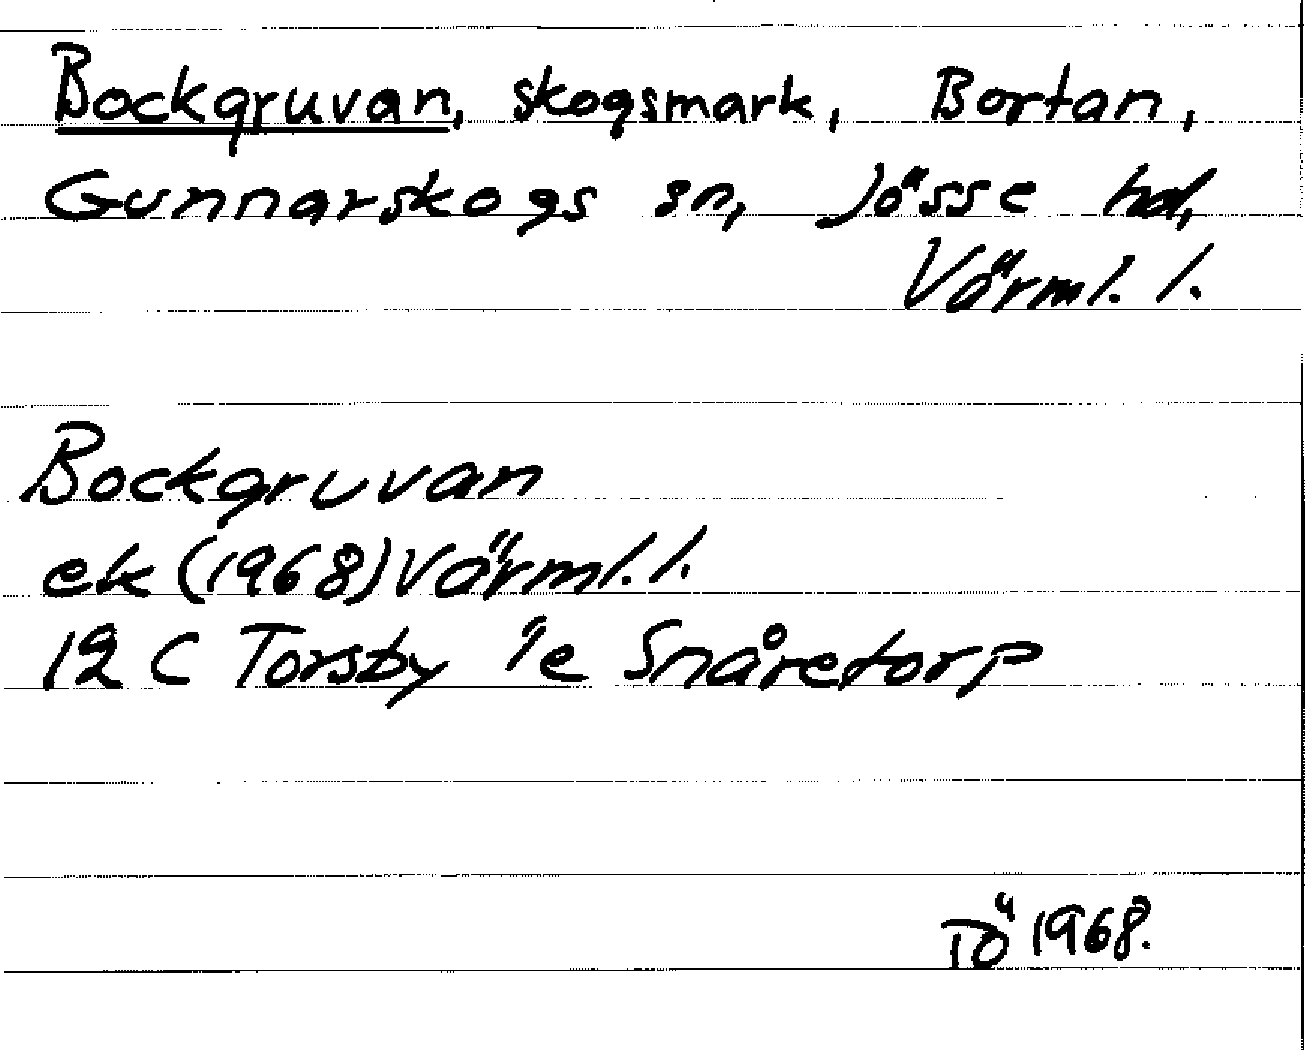 Bockgruvan, skogsmark, Bortan,
Gunnarskogs sn, Jösse hd,
Värml. l.
Bockgruvan
ek (1968) Värml. l.
12 C Torsby 1e Snåretorp
TÖ 1968.